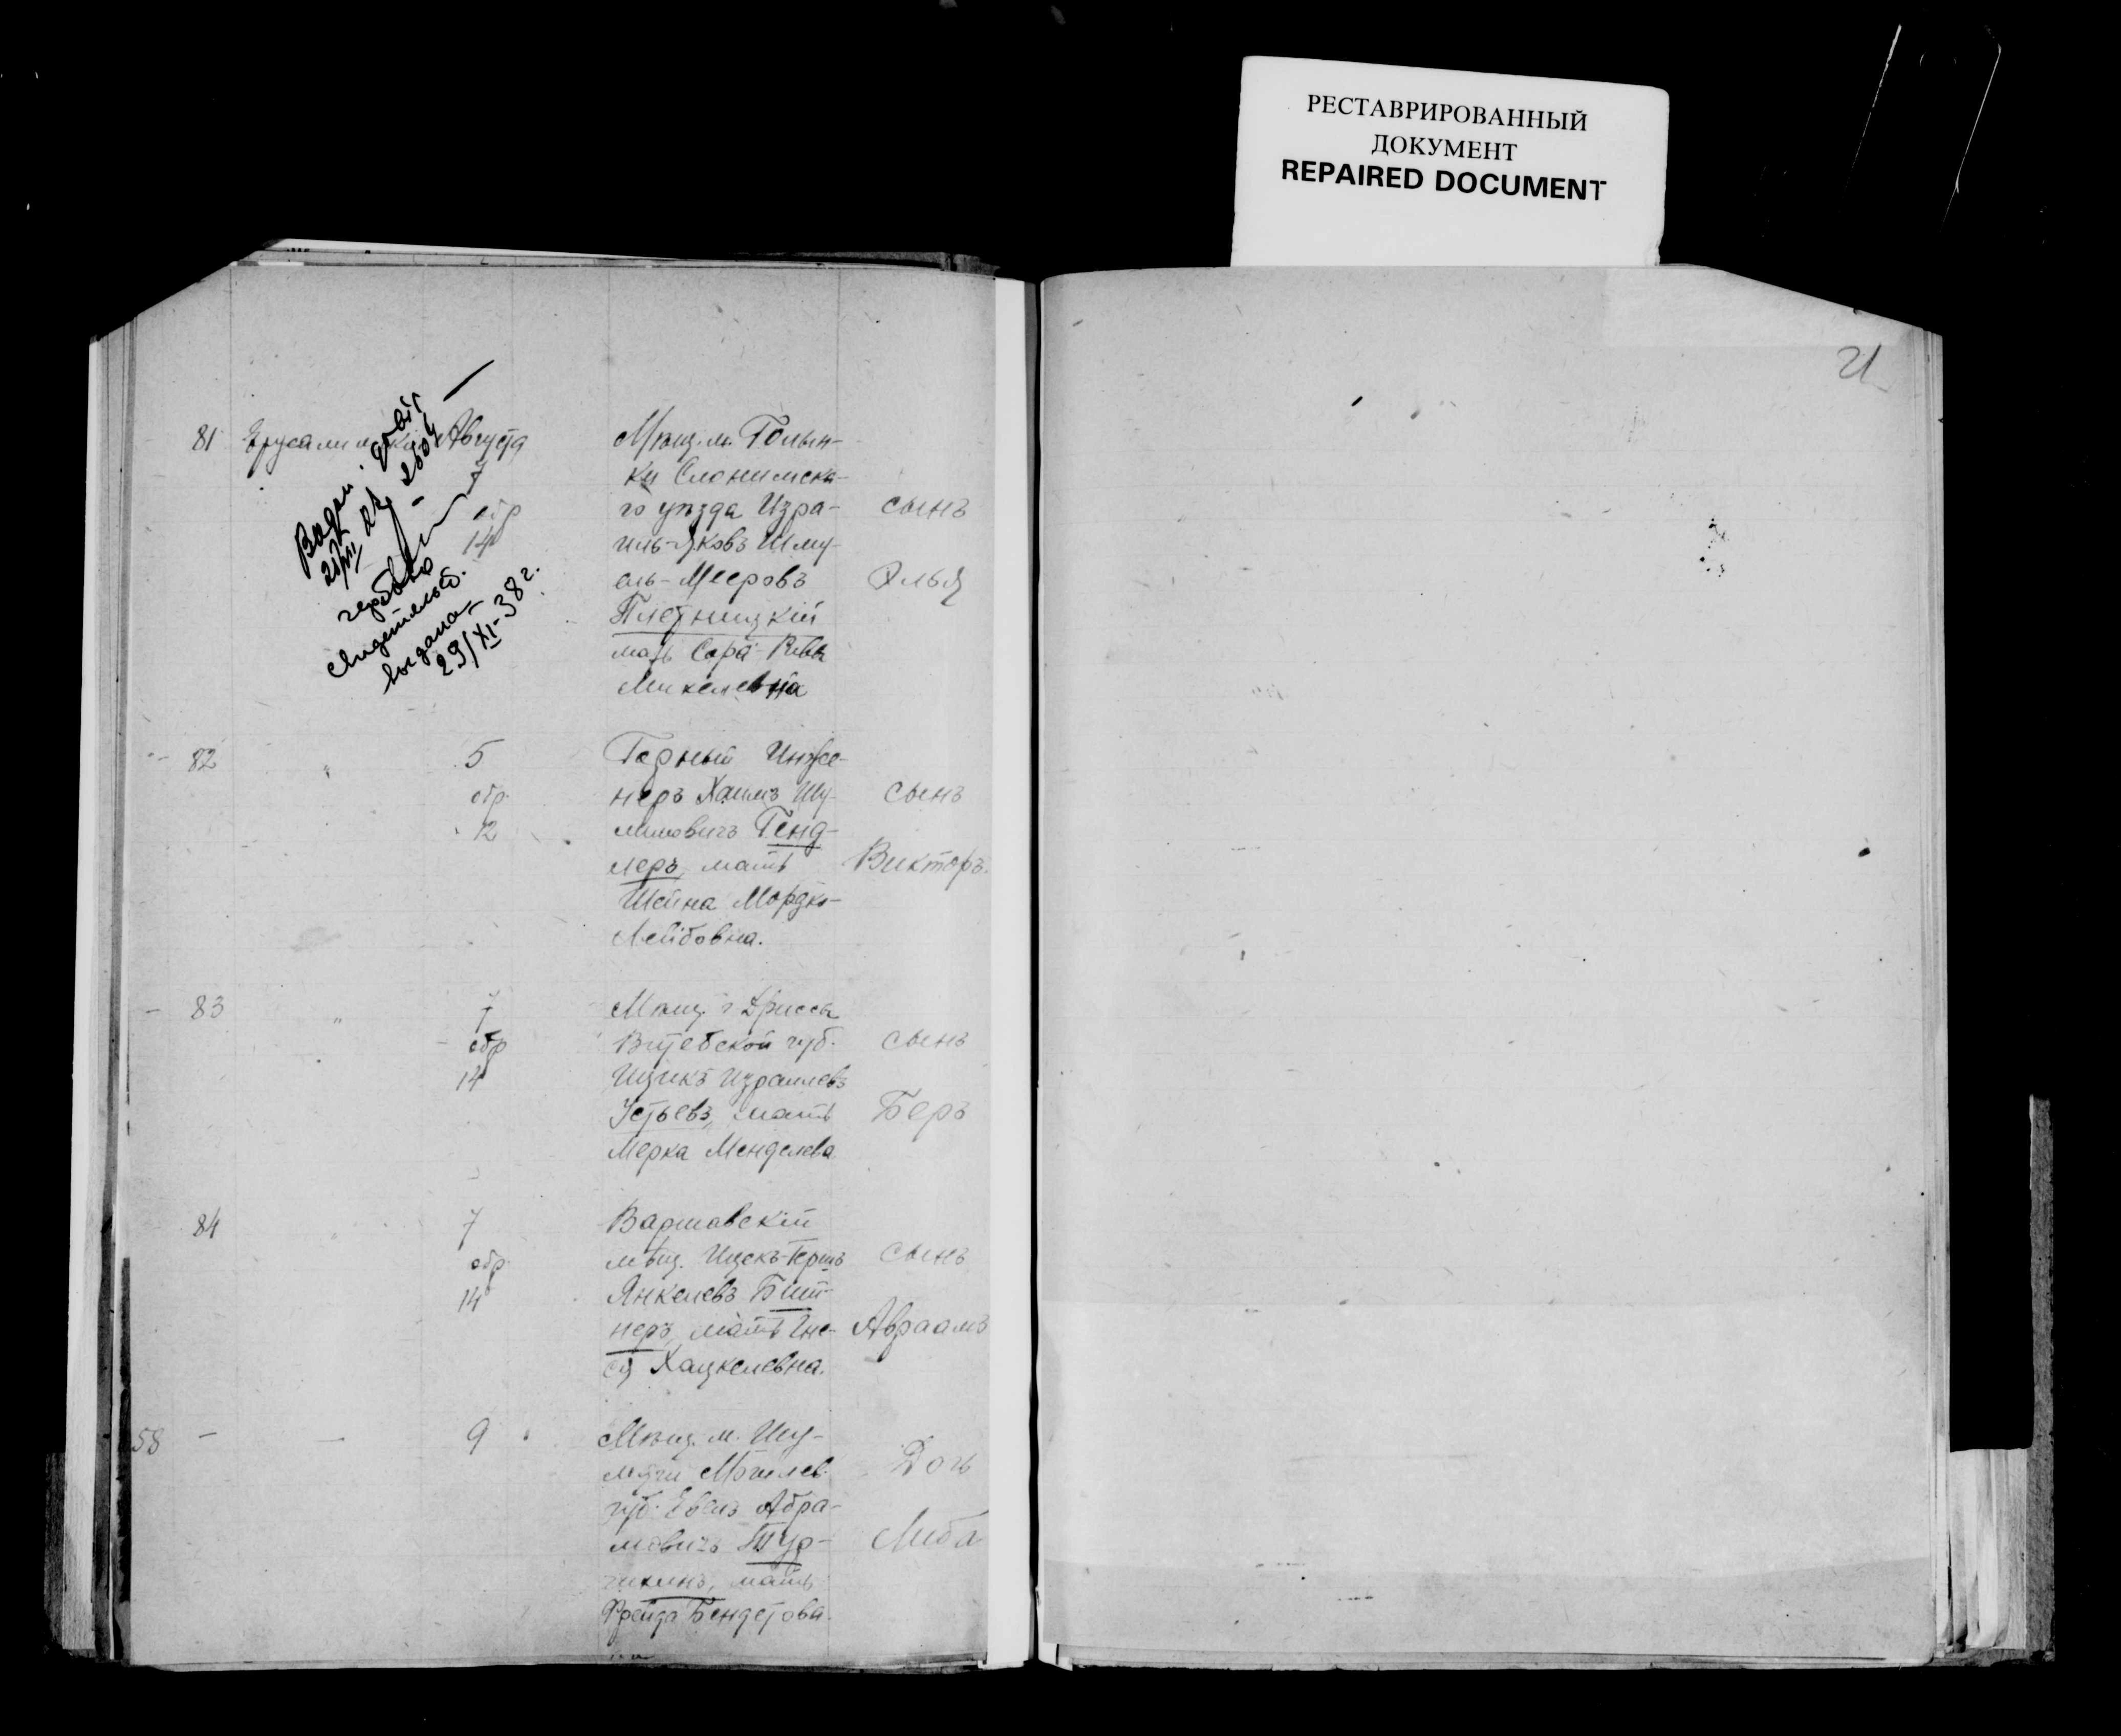 РЕСТАВРИРОВАННЫЙ
ДОКУМЕНТ
REPAIRED DOCUMENT
21
81 Август
7
обр
14
Мѣщ. м. Голын-
ки Слонимска-
го уѣзда Изра-
иль-Яковъ Шму-
ель-Мееровъ
Плетницкій
мать Сора-Ривка
Михелевна
сынъ
Элья
свидетельст.
выдана
29/XI-38 г.
82 " 5
обр.
12
Горный Инже-
неръ Хаимъ Шу-
лимовичъ Генд-
леръ, мать
Шейна Мордко-
Лейбовна.
сынъ
Викторъ.
83 " 7
обр
14
Мѣщ. г. Дриссы
Витебской губ.
Ицикъ Израилевъ
Устьевъ, мать
Мерка Менделева
сынъ
Беръ
84 7
обр.
14
Варшавскій
мѣщ. Ицекъ-Гершъ
Янкелевъ Бит-
неръ, мать Гне-
ся Хацкелевна.
сынъ
Авраамъ
58 — — 9
Мѣщ. м. Шу-
мячи Могилев.
губ. Евель Абра-
мовичъ Тур-
мать
Фрейда Бендетов
на
Дочь
Либа